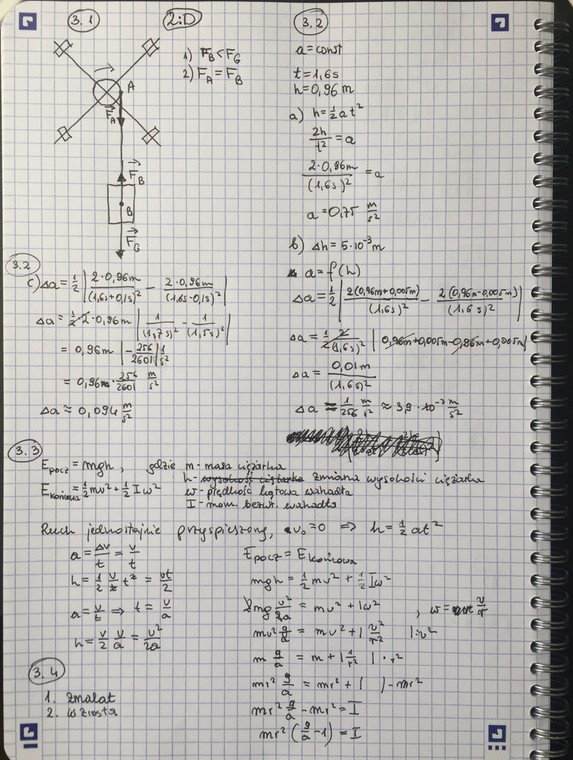 3.1
2:D
1) F_B < F_G
2) F_A = F_B
A
F_A
F_B
B
F_G
3.2
a = const
t = 1,6s
h = 0,96 m
a) h = ½ a t²
2h/t² = a
2·0,96m/(1,6s)² = a
a = 0,75 m/s²
b) Δh = 5·10⁻³ m
a = f(h)
Δa = ½ | 2(0,96m+0,005m)/(1,6s)² - 2(0,96m-0,005m)/(1,6s)² |
Δa = ½ 2/(1,6s)² | 0,96m+0,005m-0,96m+0,005m |
Δa = 0,01m/(1,6s)²
Δa = 1/256 m/s² ≈ 3,9·10⁻³ m/s²
3.2
c) Δa = ½ | 2·0,96m/(1,6s+0,1s)² - 2·0,96m/(1,6s-0,1s)² |
Δa = ½·2·0,96m | 1/(1,7s)² - 1/(1,5s)² |
= 0,96m |-256/2601| 1/s²
= 0,96·256/2601 m/s²
Δa ≈ 0,094 m/s²
3.3
E_pocz = mgh, gdzie m - masa ciężarka
h - wysokość ciężarka zmiana wysokości ciężarka
E_końcowa = ½mv² + ½Iω² ω - prędkość kątowa wahadła
I - mom. bezwł. wahadła
Ruch jednostajnie przyspieszony, v₀ = 0 ⇒ h = ½ at²
a = Δv/t = v/t
h = ½ v/t t² = vt/2
a = v/t ⇒ t = v/a
h = v/2 v/a = v²/2a
E_pocz = E_końcowa
mgh = ½ mv² + ½ Iω²
2mg v²/2a = mv² + Iω² , ω = v/r
mv² g/a = mv² + I v²/r² |:v²
m g/a = m + I 1/r² |·r²
mr² g/a = mr² + I |-mr²
mr² g/a - mr² = I
mr² (g/a - 1) = I
3.4
1. zmalał
2. wzrosła